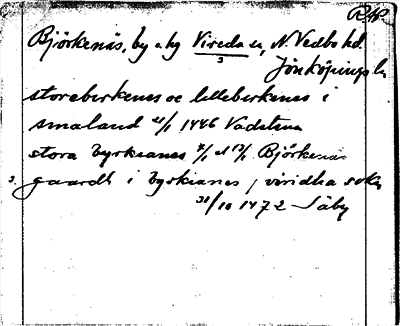 RAP.
Björkenäs, by o. hg Vireda sn, N. Vedbo hd.
3
Jönköpings l.
storeberkenes oc lilleberkenes i
smaland 21/1 1446 Vadstena
stora byrkianes 7/1 el 13/1 Björkenäs
3. gaardt i byrkianes, viridha sokn
31/10 1472 Säby